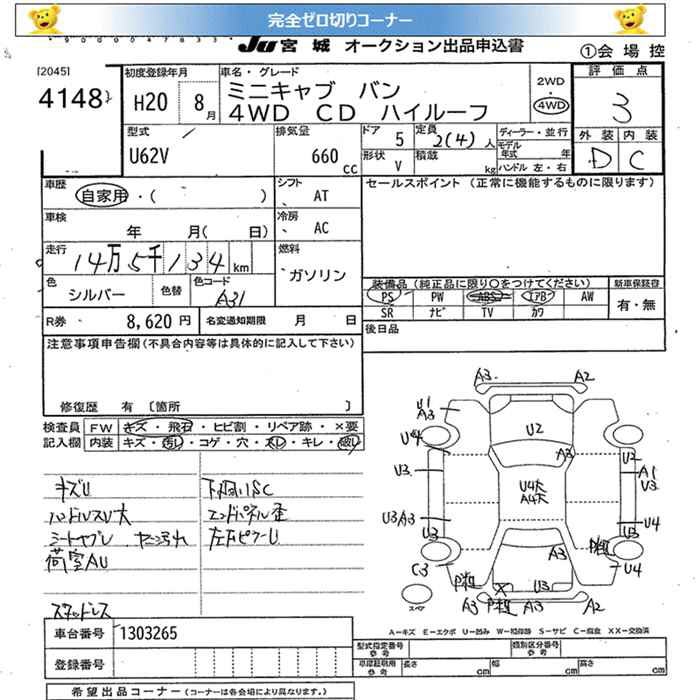 完全ゼロ切りコーナー
JU宮城 オークション出品申込書
①会場控
[2045]
4148
初度登録年月
H20 8月
車名・グレード
ミニキャブ バン
4WD CD ハイルーフ
2WD・4WD
評価点
3
外装 内装
D C
型式
U62V
排気量
660 cc
ドア 5
定員 2(4)人
形状 V
積載 kg
ディーラー・並行
モデル年式 年
ハンドル 左・右
車歴
自家用・( )
シフト
AT
セールスポイント(正常に機能するものに限ります)
車検
年 月( 日)
冷房
AC
走行
14万5千134km
燃料
ガソリン
色
シルバー
色替
色コード
A31
装備品(純正品に限り○をつけてください)
新車保証書
PS PW ABS エアB AW
有・無
SR ナビ TV カワ
R券 8,620円
名変通知期限 月 日
後日品
注意事項申告欄(不具合内容等は具体的に記入して下さい)
修復歴 有 〔箇所 〕
検査員記入欄
FW キズ・飛石・ヒビ割・リペア跡・×要
内装 キズ・汚れ・コゲ・穴・スレ・キレ・破れ
キズU
ハンドルスレ大
荷室AU
スタッドレス
下回りSC
エンドパネル歪
A3 A2
U1
A3
U2
U4
A3
U2
U3
U4大
A4大
A1
V3
U3A3
U4
U3
U3
A3
P粗
C3
U4
P粗
X
U3
スペア
A3 P粗 A3 A2
A-キズ E-エクボ U-凹み W-補修跡 S-サビ C-腐食 XX-交換済
車台番号 1303265
登録番号
型式指定番号参考
類別区分番号参考
車庫証明用参考 長さ cm 幅 cm 高さ cm
希望出品コーナー(コーナーは各会場により異なります。)